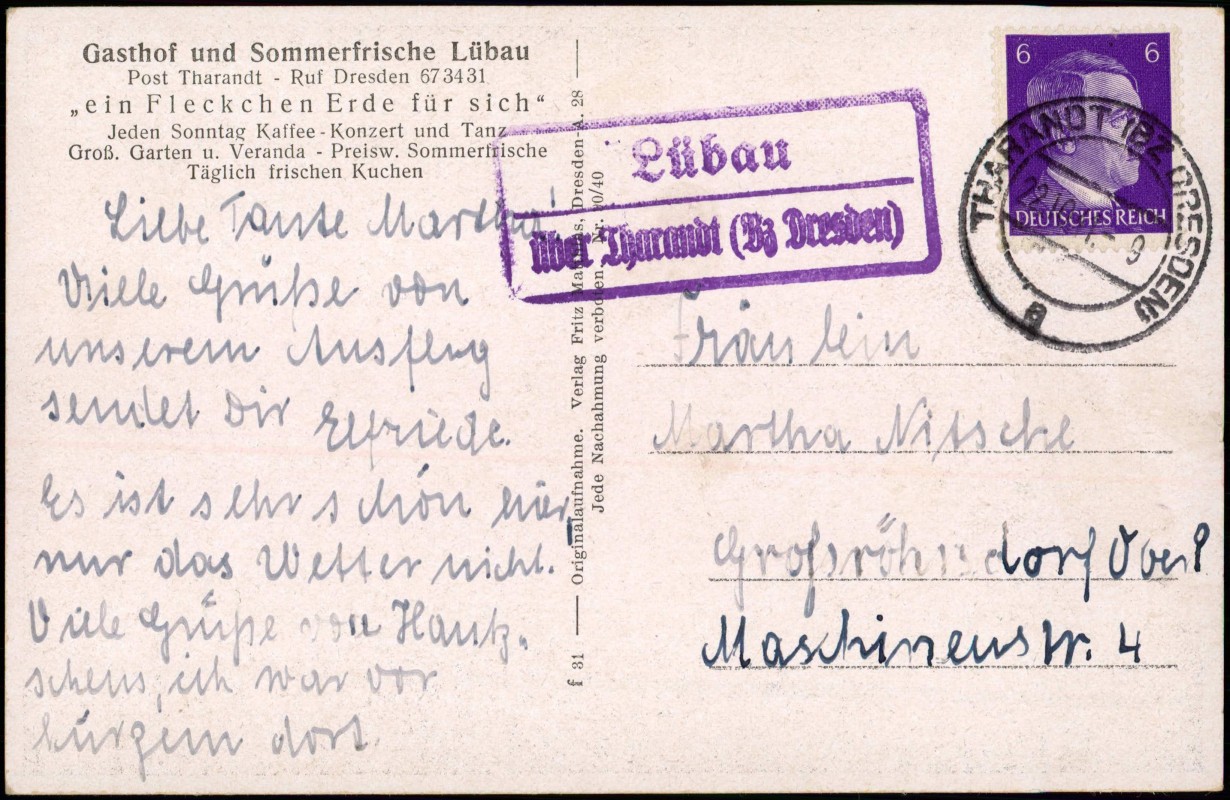 Gasthof und Sommerfrische Lübau
Post Tharandt - Ruf Dresden 673431
„ein Fleckchen Erde für sich“
Jeden Sonntag Kaffee-Konzert und Tanz
Groß. Garten u. Veranda - Preisw. Sommerfrische
Täglich frischen Kuchen
Liebe Tante Martha!
Viele Grüße von
unserem Ausflug
sendet Dir Elfriede.
Es ist sehr schön hier,
nur das Wetter nicht.
Viele Grüße von Hantz-
schens, ich war vor
kurzem dort.
f 31 — Originalaufnahme. Verlag Fritz Dresden-A. 28 —
Jede Nachahmung verboten Nr. 40/40
Lübau
über Tharandt (Bz Dresden)
6 6
DEUTSCHES REICH
THARANDT (BZ DRESDEN)
a
Fräulein
Martha Nitsche
Großröhrsdorf
Maschinenstr. 4